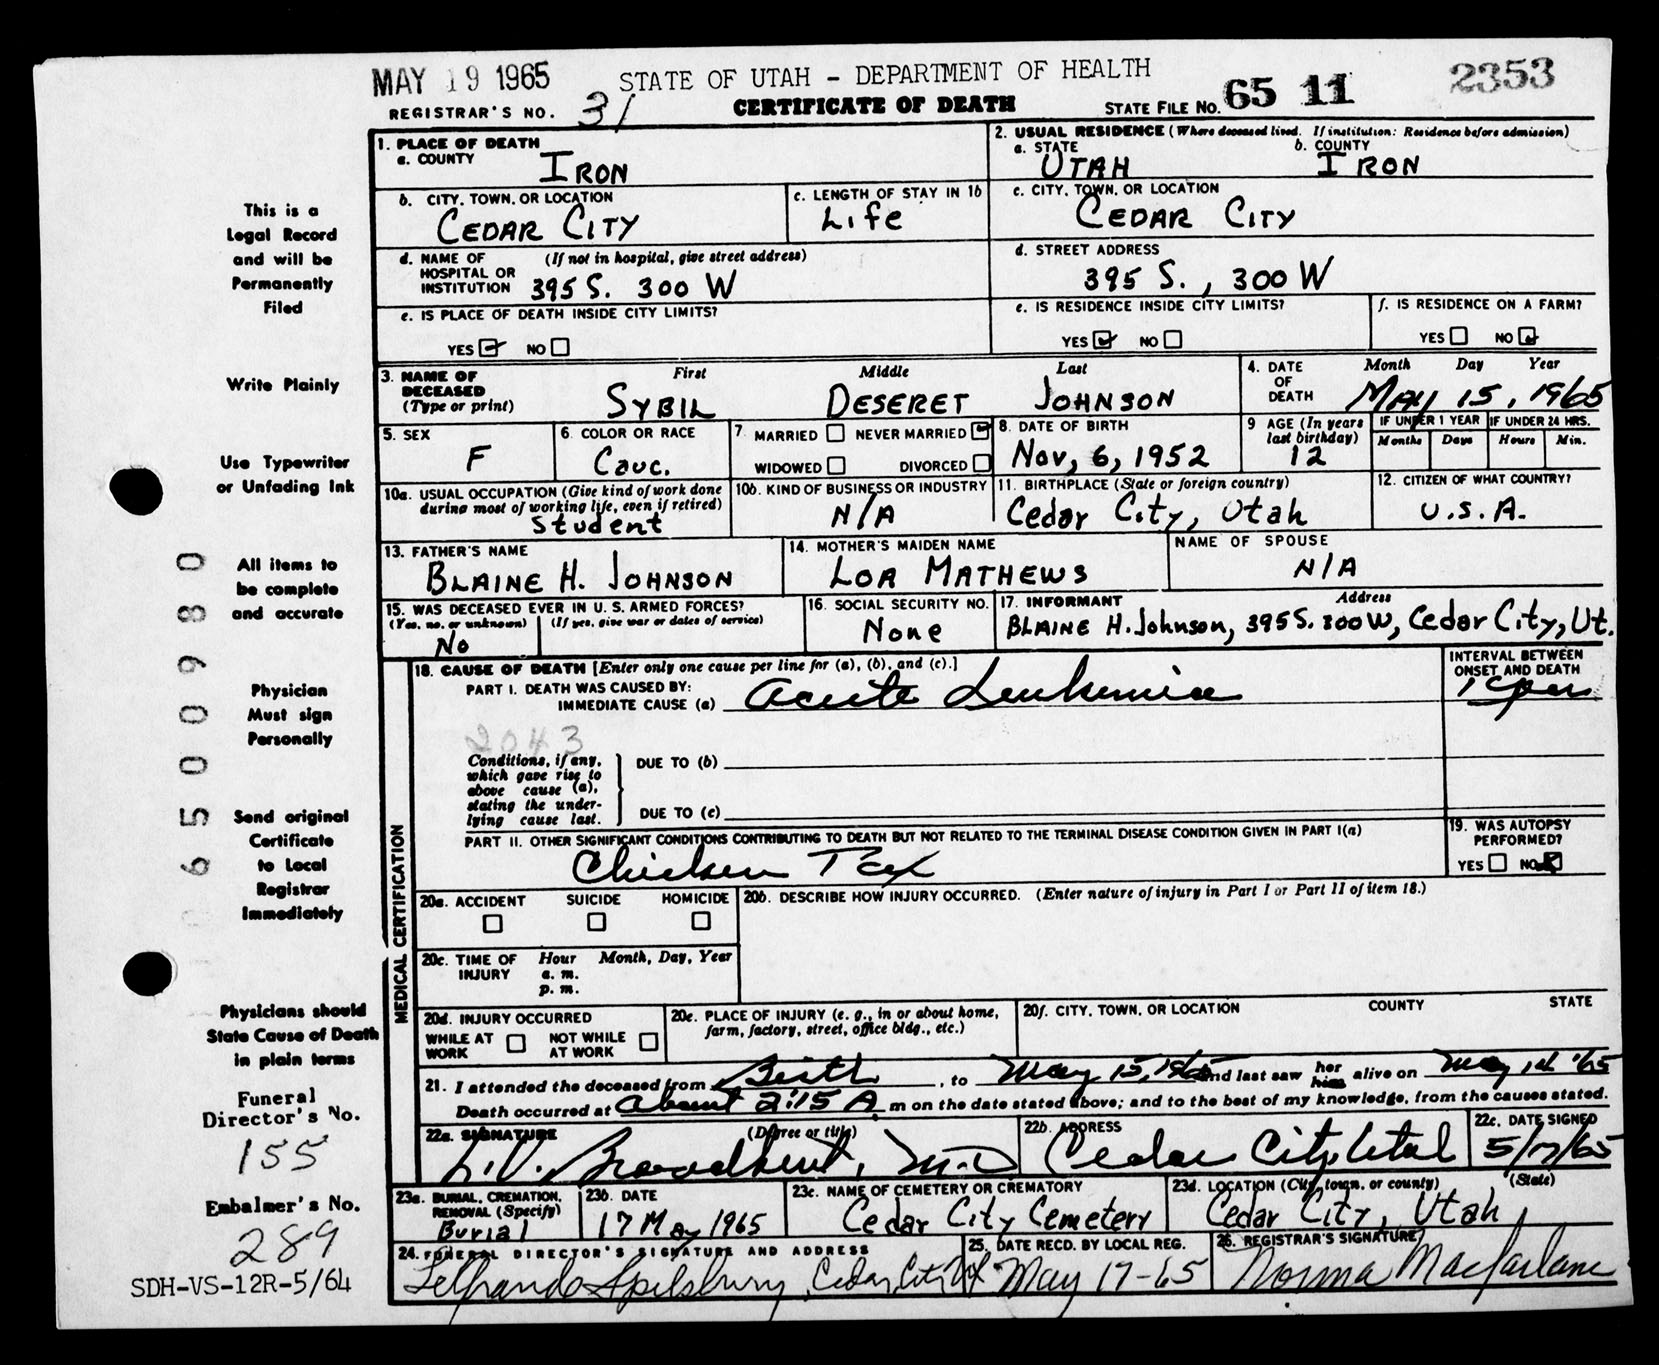 MAY 19 1965 STATE OF UTAH - DEPARTMENT OF HEALTH 2353
REGISTRAR'S NO. 31 CERTIFICATE OF DEATH STATE FILE NO. 65 11
1. PLACE OF DEATH
a. COUNTY IRON
2. USUAL RESIDENCE (Where deceased lived. If institution: Residence before admission)
a. STATE UTAH b. COUNTY IRON
b. CITY, TOWN, OR LOCATION CEDAR CITY
c. LENGTH OF STAY IN 1b Life
c. CITY, TOWN, OR LOCATION CEDAR CITY
d. NAME OF (If not in hospital, give street address)
HOSPITAL OR
INSTITUTION 395 S. 300 W
d. STREET ADDRESS
395 S., 300 W
e. IS PLACE OF DEATH INSIDE CITY LIMITS?
YES NO
e. IS RESIDENCE INSIDE CITY LIMITS?
YES NO
f. IS RESIDENCE ON A FARM?
YES NO
3. NAME OF DECEASED (Type or print)
First Middle Last
SYBIL DESERET JOHNSON
4. DATE OF DEATH Month Day Year
MAY 15, 1965
5. SEX F
6. COLOR OR RACE Cauc.
7 MARRIED NEVER MARRIED
WIDOWED DIVORCED
8. DATE OF BIRTH Nov, 6, 1952
9 AGE (In years last birthday) 12
IF UNDER 1 YEAR IF UNDER 24 HRS.
Months Days Hours Min.
10a. USUAL OCCUPATION (Give kind of work done during most of working life, even if retired)
Student
10b. KIND OF BUSINESS OR INDUSTRY
N/A
11. BIRTHPLACE (State or foreign country)
Cedar City, Utah
12. CITIZEN OF WHAT COUNTRY?
U.S.A.
13. FATHER'S NAME
BLAINE H. JOHNSON
14. MOTHER'S MAIDEN NAME
LOA MATHEWS
NAME OF SPOUSE
N/A
15. WAS DECEASED EVER IN U. S. ARMED FORCES?
(Yes, no, or unknown) (If yes, give war or dates of service)
No
16. SOCIAL SECURITY NO.
None
17. INFORMANT Address
BLAINE H. Johnson, 395 S. 300 W, Cedar City, Ut.
MEDICAL CERTIFICATION
18. CAUSE OF DEATH [Enter only one cause per line for (a), (b), and (c).]
PART I. DEATH WAS CAUSED BY:
IMMEDIATE CAUSE (a) Acute Leukemia
INTERVAL BETWEEN ONSET AND DEATH
1 year
2043
Conditions, if any, which gave rise to above cause (a), stating the underlying cause last.
DUE TO (b)
DUE TO (c)
PART II. OTHER SIGNIFICANT CONDITIONS CONTRIBUTING TO DEATH BUT NOT RELATED TO THE TERMINAL DISEASE CONDITION GIVEN IN PART I(a)
Chicken Pox
19. WAS AUTOPSY PERFORMED?
YES NO
20a. ACCIDENT SUICIDE HOMICIDE
20b. DESCRIBE HOW INJURY OCCURRED. (Enter nature of injury in Part I or Part II of item 18.)
20c. TIME OF INJURY Hour Month, Day, Year
a. m.
p. m.
20d. INJURY OCCURRED
WHILE AT WORK NOT WHILE AT WORK
20e. PLACE OF INJURY (e. g., in or about home, farm, factory, street, office bldg., etc.)
20f. CITY, TOWN, OR LOCATION COUNTY STATE
21. I attended the deceased from Birth, to May 15, 1965 and last saw her him alive on May 14 '65
Death occurred at about 2:15 A. m on the date stated above; and to the best of my knowledge, from the causes stated.
22a. SIGNATURE (Degree or title)
L.V. Broadbent, M.D
22b. ADDRESS
Cedar City, Utah
22c. DATE SIGNED
5/17/65
23a. BURIAL, CREMATION, REMOVAL (Specify)
Burial
23b. DATE
17 May 1965
23c. NAME OF CEMETERY OR CREMATORY
Cedar City Cemetery
23d. LOCATION (City, town, or county) (State)
Cedar City, Utah
24. FUNERAL DIRECTOR'S SIGNATURE AND ADDRESS
Spilsbury, Cedar City Ut
25. DATE RECD. BY LOCAL REG.
May 17-65
26. REGISTRAR'S SIGNATURE
Norma Macfarlane
This is a
Legal Record
and will be
Permanently
Filed
Write Plainly
Use Typewriter
or Unfading Ink
All items to
be complete
and accurate
Physician
Must sign
Personally
Send original
Certificate
to Local
Registrar
Immediately
Physicians should
State Cause of Death
in plain terms
Funeral
Director's No.
155
Embalmer's No.
289
SDH-VS-12R-5/64
6500980